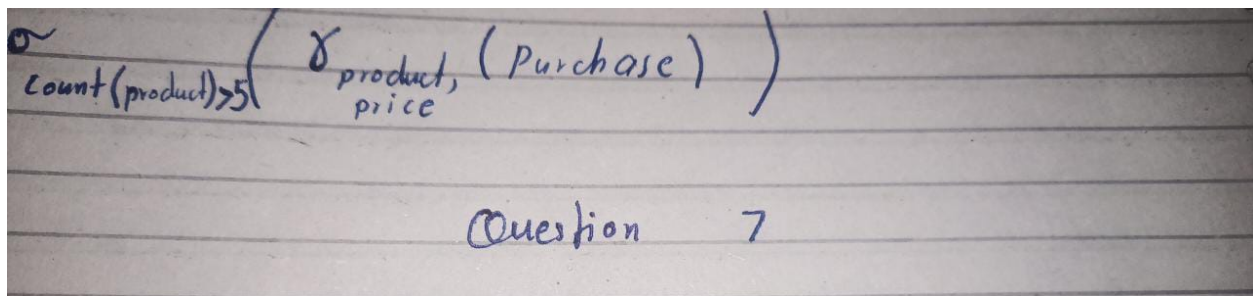 σ count(product)>5 ( γ product, price (Purchase) )
Question 7